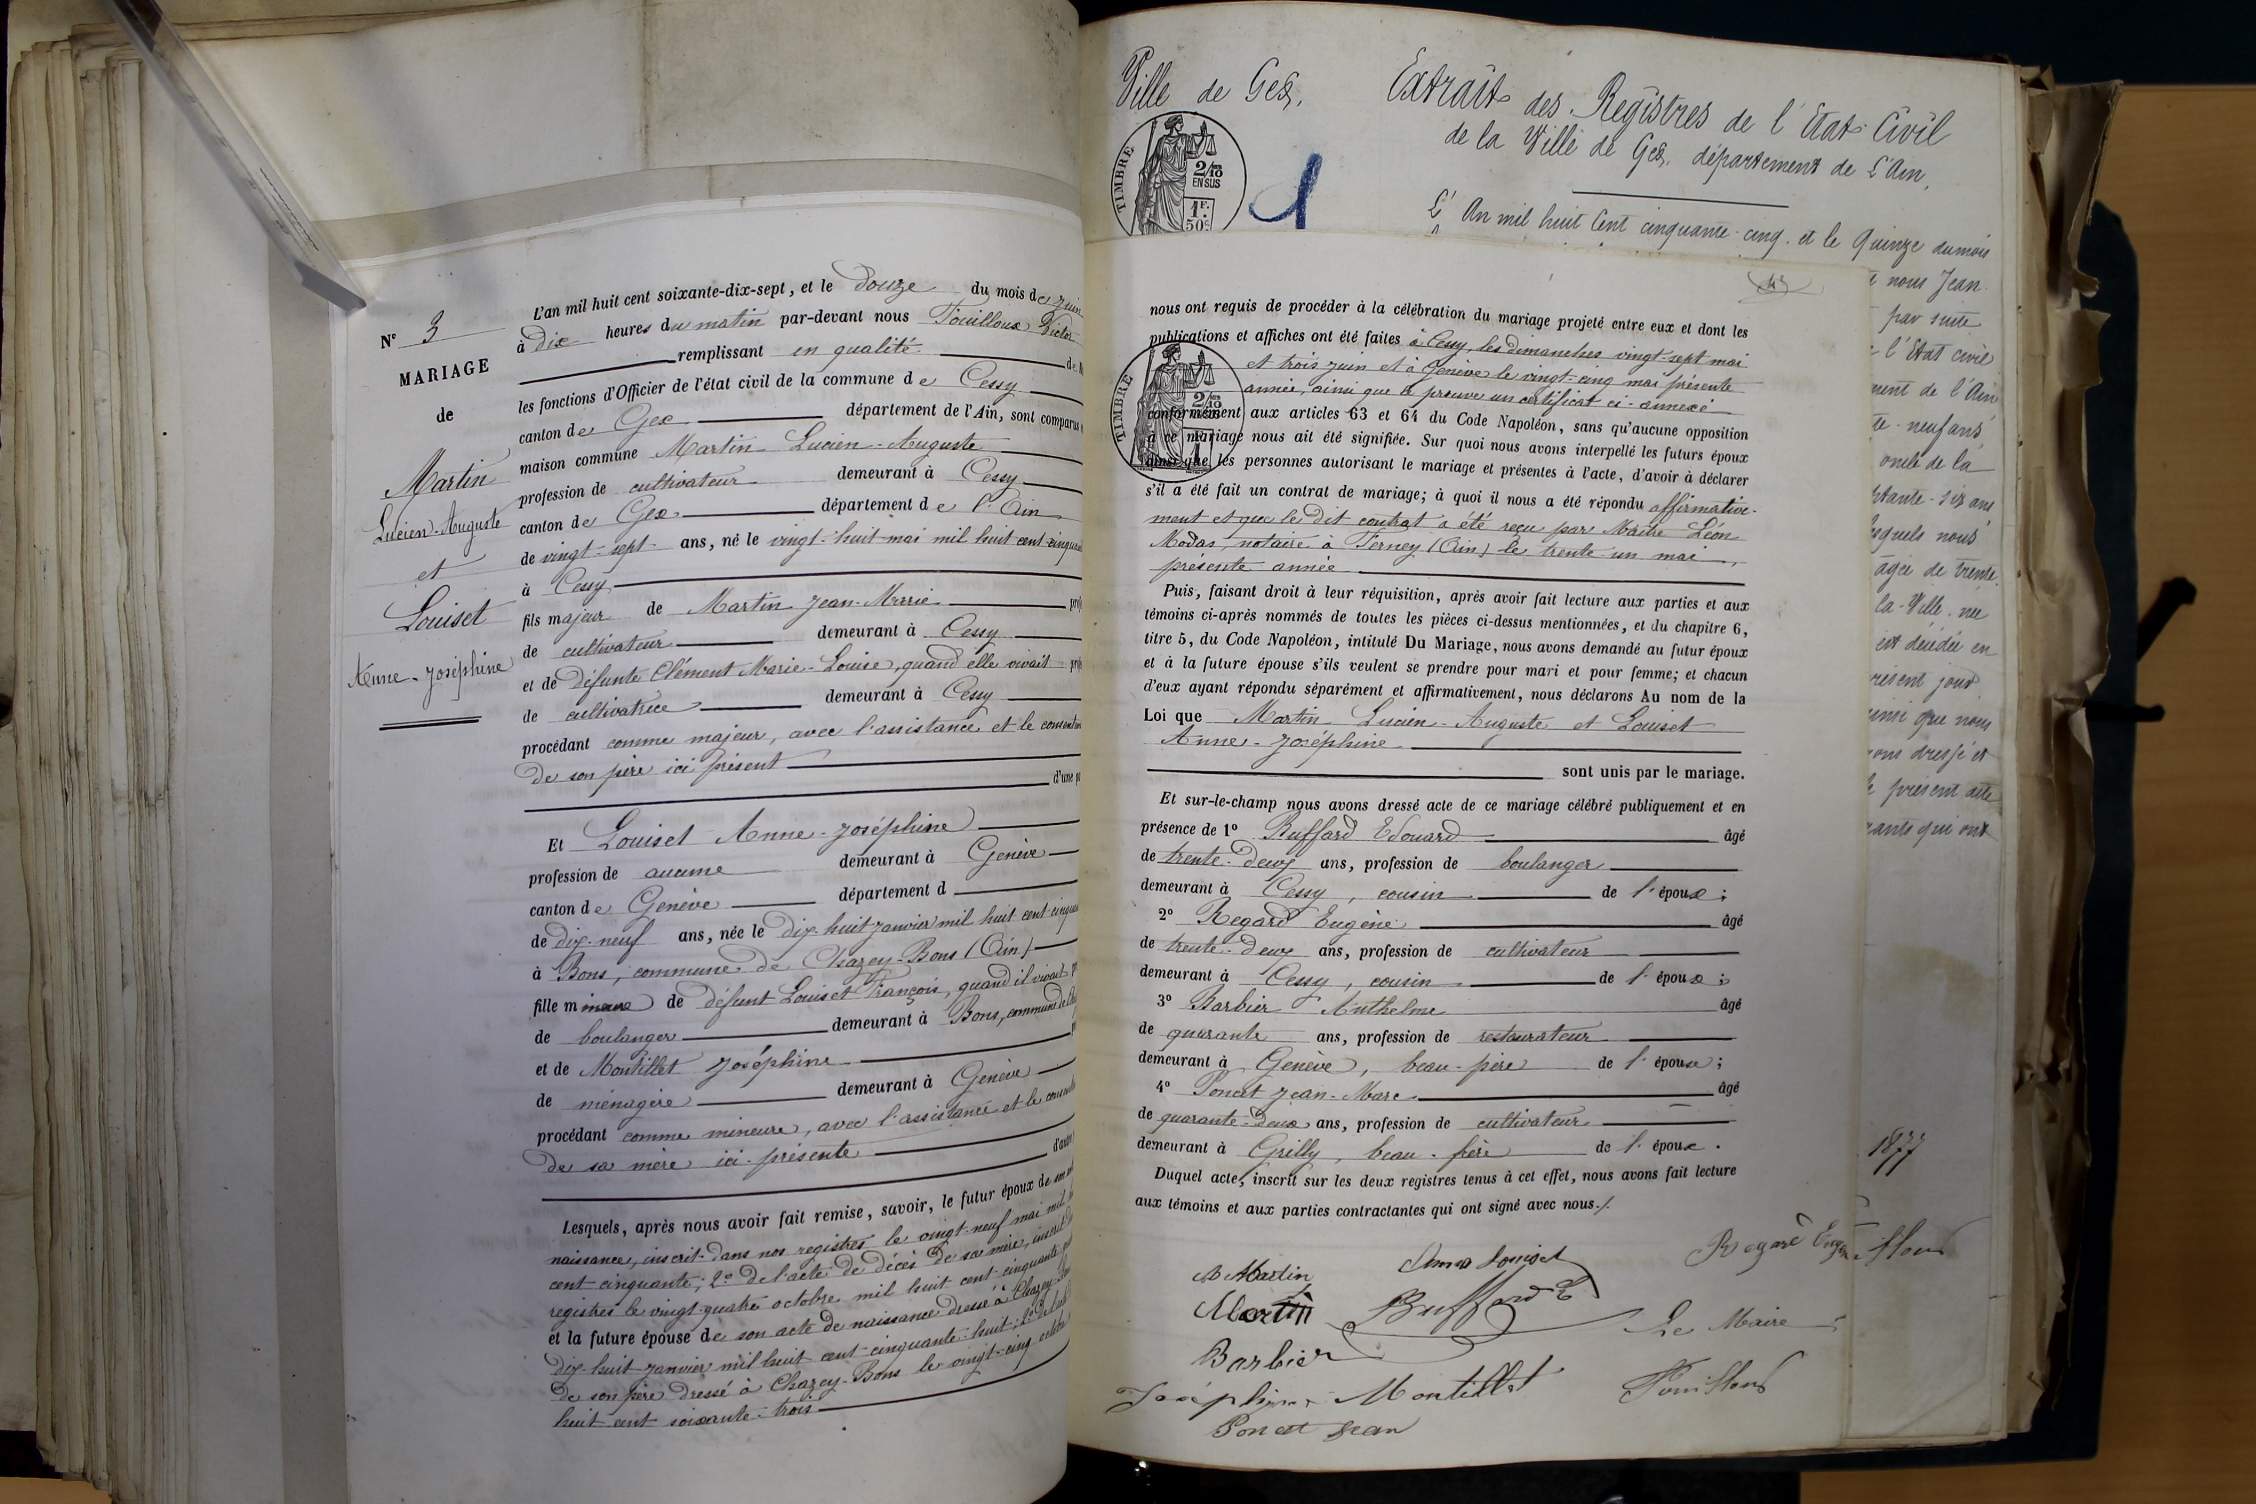 N° 3
MARIAGE
de
Martin
Lucien-Auguste
et
Louiset
Anne-Joséphine
L'an mil huit cent soixante-dix-sept, et le douze du mois de juin
à dix heures du matin par-devant nous Fouilloux Victor
remplissant en qualité de M
les fonctions d'Officier de l'état civil de la commune de Cessy
canton de Gex département de l'Ain, sont comparus
maison commune Martin Lucien-Auguste
profession de cultivateur demeurant à Cessy
canton de Gex département de l'Ain
de vingt-sept ans, né le vingt-huit mai mil huit cent cinquan
à Cessy
fils majeur de Martin Jean-Marie prof
de cultivateur demeurant à Cessy
et de défunte Clément Marie-Louise, quand elle vivait prof
de cultivatrice demeurant à Cessy
procédant comme majeur, avec l'assistance et le consentem
de son père ici présent
d'une p
Et Louiset Anne-Joséphine
profession de aucune demeurant à Genève
canton de Genève département d
de dix-neuf ans, née le dix-huit janvier mil huit cent cinqua
à Bons, commune de Chazey-Bons (Ain)
fille mineure de défunt Louiset François, quand il vivait p
de boulanger demeurant à Bons, commune de Cha
et de Montillet Joséphine
de ménagère demeurant à Genève
procédant comme mineure, avec l'assistance et le consente
de sa mère ici présente
d'autre
Lesquels, après nous avoir fait remise, savoir, le futur époux de son
naissance, inscrit dans nos registres le vingt-neuf mai mil
cent cinquante; 2° de l'acte de décès de sa mère, inscrit
registres le vingt-quatre octobre mil huit cent cinquante
et la future épouse de son acte de naissance dressé à Chazey-Bon
dix-huit janvier mil huit cent cinquante-huit; 2° de
de son père dressé à Chazey-Bons le vingt-cinq octobre
huit cent soixante-trois
Ville de Gex,
Extrait des Registres de l'Etat Civil
de la Ville de Gex, département de L'Ain,
TIMBRE
2/10
EN SUS
1F.
50c
L'An mil huit Cent cinquante-cinq et le Quinze du mois
nous Jean
par suite
l'Etat civil
ment de l'Ain
te-neuf ans
oncle de la
ptante-six ans
esquels nous
agée de trente
la Ville née
est décédée en
résent jour
ainsi que nous
ons dressé et
le présent acte
rants qui ont
1877
nous ont requis de procéder à la célébration du mariage projeté entre eux et dont les
publications et affiches ont été faites à Cessy, les dimanches vingt-sept mai
et trois juin et à Genève le vingt-cinq mai présente
année, ainsi que le prouve un certificat ci-annexé
conformément aux articles 63 et 64 du Code Napoléon, sans qu'aucune opposition
à ce mariage nous ait été signifiée. Sur quoi nous avons interpellé les futurs époux
ainsi que les personnes autorisant le mariage et présentes à l'acte, d'avoir à déclarer
s'il a été fait un contrat de mariage; à quoi il nous a été répondu affirmative-
ment et que le dit contrat a été reçu par Maître Léon
Modas, notaire à Ferney (Ain) le trente-un mai,
présente année
TIMBRE
2/10
Puis, faisant droit à leur réquisition, après avoir fait lecture aux parties et aux
témoins ci-après nommés de toutes les pièces ci-dessus mentionnées, et du chapitre 6,
titre 5, du Code Napoléon, intitulé Du Mariage, nous avons demandé au futur époux
et à la future épouse s'ils veulent se prendre pour mari et pour femme; et chacun
d'eux ayant répondu séparément et affirmativement, nous déclarons Au nom de la
Loi que Martin Lucien-Auguste et Louiset
Anne-Joséphine
sont unis par le mariage.
Et sur-le-champ nous avons dressé acte de ce mariage célébré publiquement et en
présence de 1° Buffard Edouard âgé
de trente-deux ans, profession de boulanger
demeurant à Cessy, cousin de l'époux;
2° Regard Eugène âgé
de trente-deux ans, profession de cultivateur
demeurant à Cessy, cousin de l'époux;
3° Barbier Anthelme âgé
de quarante ans, profession de restaurateur
demeurant à Genève, beau-père de l'épouse;
4° Poncet Jean-Marc âgé
de quarante-deux ans, profession de cultivateur
demeurant à Grilly, beau-frère de l'époux.
Duquel acte, inscrit sur les deux registres tenus à cet effet, nous avons fait lecture
aux témoins et aux parties contractantes qui ont signé avec nous./.
Martin
Anna Louiset
Regard Eugène
Martin
Buffard E
Le Maire
Barbier
Joséphine Montillet
Fouilloux
Poncet Jean